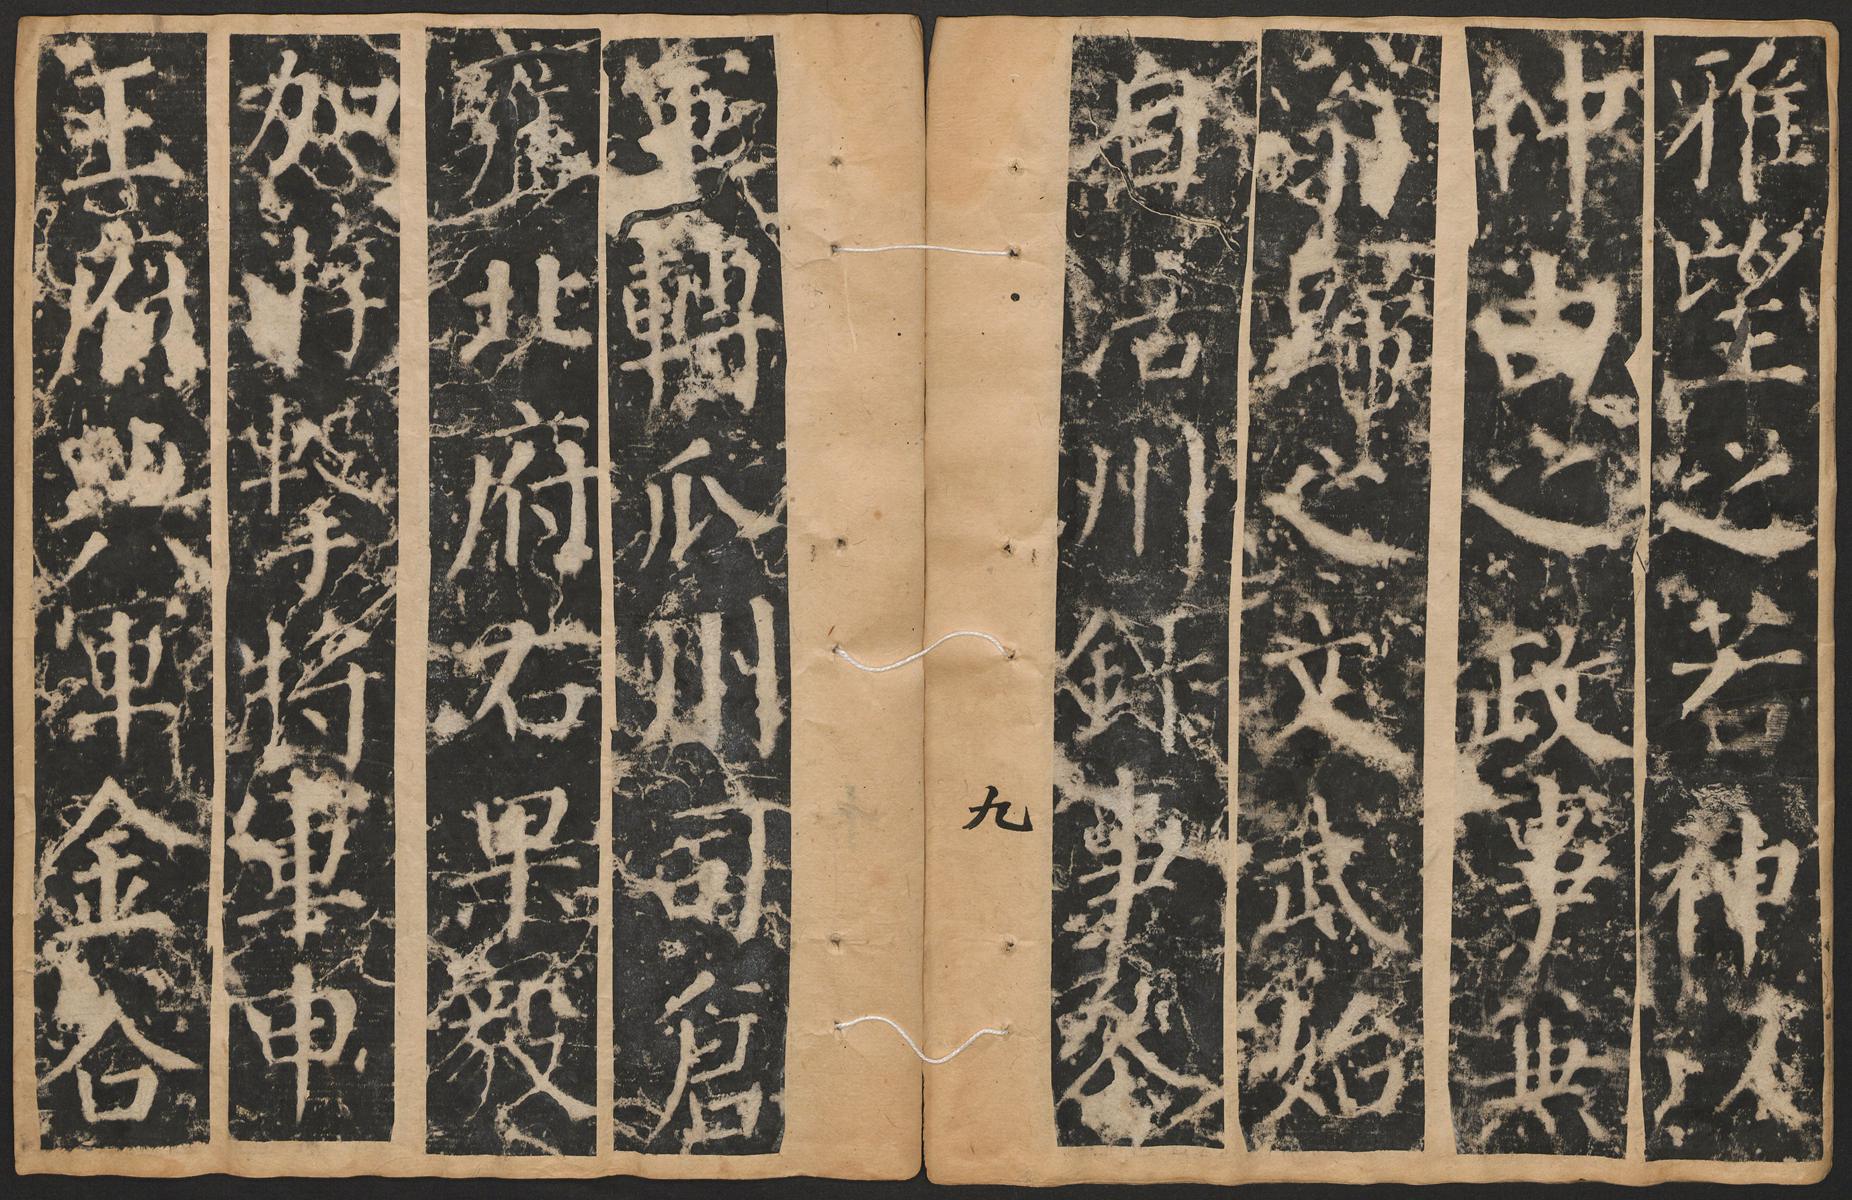 雅望之若神以
仲由之政事兼
翁歸之文武始
自涪州錄事參
九
軍轉瓜州司倉
雍北府右果毅
加游擊將軍申
王府典軍金谷